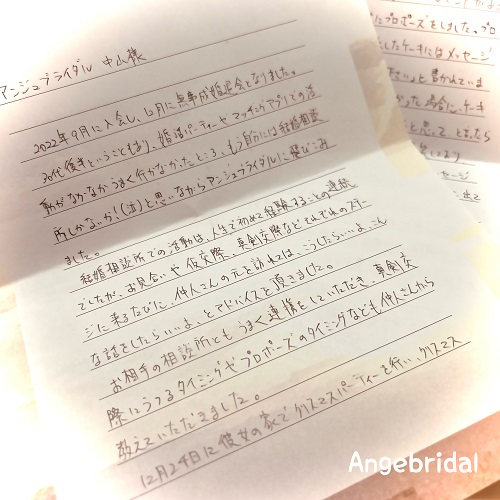 アンジュブライダル 中山様
2022年9月に入会し、12月に無事成婚退会となりました。
30代後半ということもあり、婚活パーティーやマッチングアプリでの活
動がなかなかうまく行かなかったところ、もう自分には結婚相談
所しかないか!(泣)と思いながらアンジュブライダルに飛びこみ
ました。
結婚相談所での活動は、人生で初めて経験することの連続
でしたが、お見合いや仮交際、真剣交際などそれぞれのステー
ジに来るたびに、仲人さんの元を訪れては、こうしたらいいよ、こん
な話をしたらいいよ、とアドバイスを頂きました。
お相手の相談所ともうまく連携をしていただき、真剣交
際にうつるタイミングやプロポーズのタイミングなども仲人さんから
教えていただきました。
12月24日に彼女の家でクリスマスパーティーを行い、クリスマス
にプロポーズをしました。プロ
したケーキにはメッセージ
と書かれていま
った場合に、ケーキ
と思って とまったら
ッセージ
Angebridal